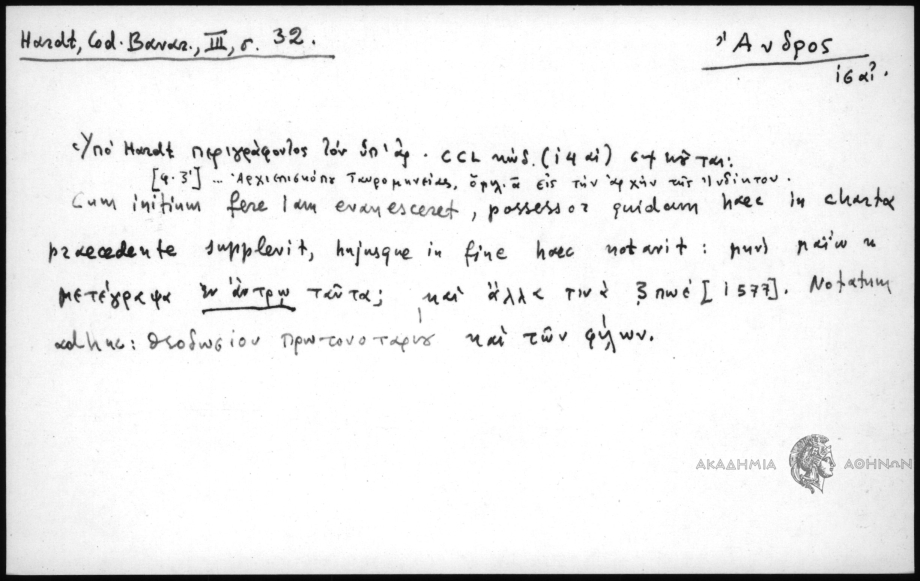 Hardt, Cod. Bavar., III, σ. 32.
Ἄνδρος
ις αἰ.
Ὑπὸ Hardt περιγράφοντος τὸν ὑπ' ἀρ. CCL κώδ. (ιϛ αἰ)
[φ. 3] ... Ἀρχιεπισκόπου Ταυρομηνείας, ὁμιλία εἰς τὴν ἀρχὴν τῆς Ἰνδίκτου.
Cum initium fere iam evanesceret, possessor quidam haec in charta
praecedente supplevit, hujusque in fine haec notavit: μηνὶ μαΐῳ κ
μετέγραφα ἐν ἄντρῳ ταῦτα; καὶ ἄλλα τινὰ ζπωέ [1577]. Notatum
adhuc: Θεοδωσίου πρωτονοταρίου καὶ τῶν φίλων.
ΑΚΑΔΗΜΙΑ ΑΘΗΝΩΝ